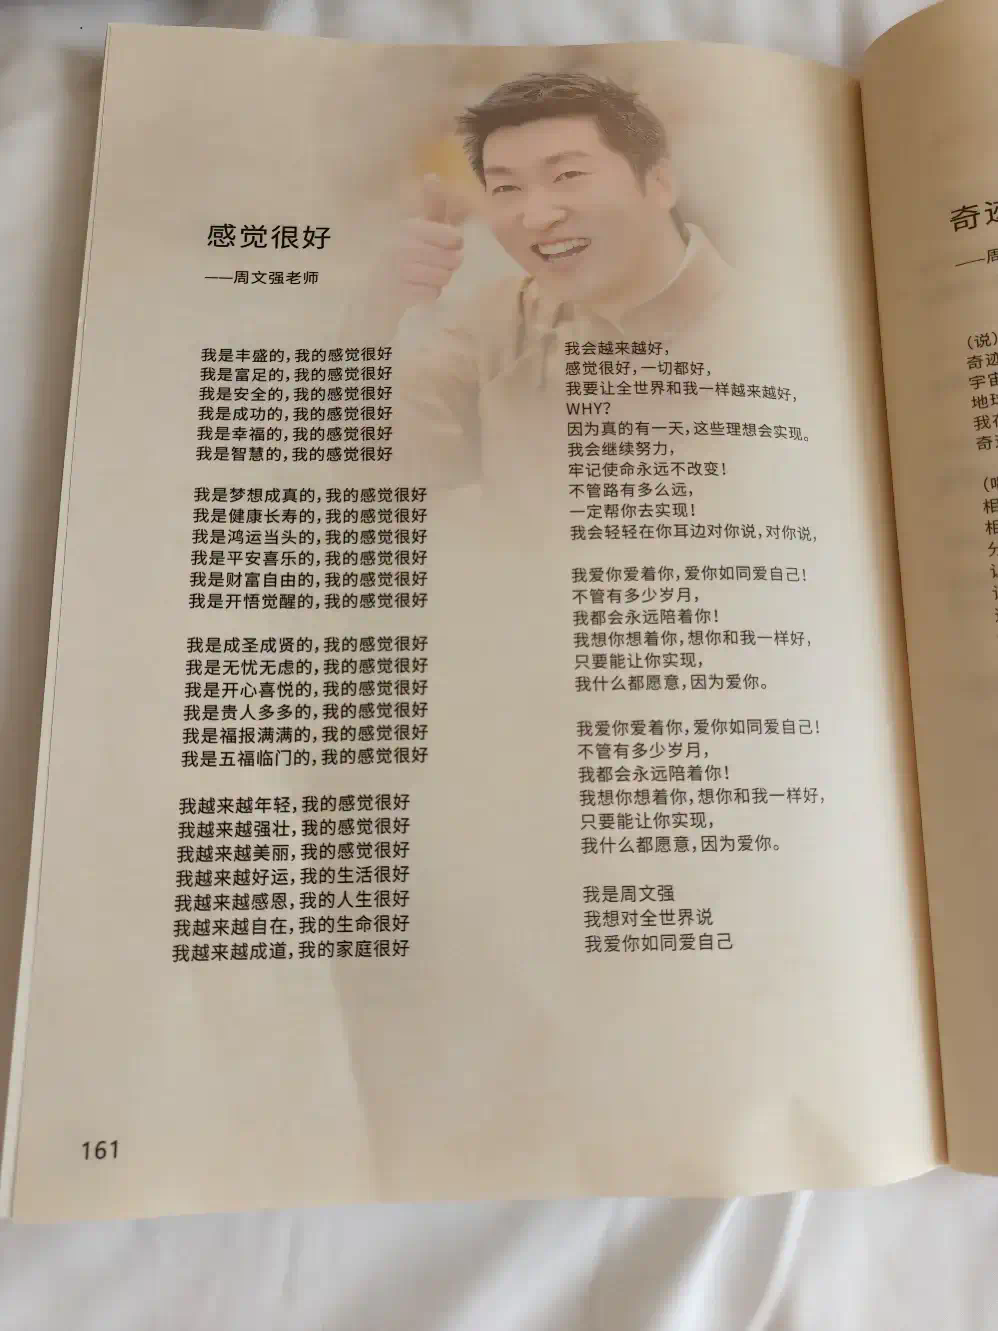 感觉很好
——周文强老师
我是丰盛的，我的感觉很好
我是富足的，我的感觉很好
我是安全的，我的感觉很好
我是成功的，我的感觉很好
我是幸福的，我的感觉很好
我是智慧的，我的感觉很好
我是梦想成真的，我的感觉很好
我是健康长寿的，我的感觉很好
我是鸿运当头的，我的感觉很好
我是平安喜乐的，我的感觉很好
我是财富自由的，我的感觉很好
我是开悟觉醒的，我的感觉很好
我是成圣成贤的，我的感觉很好
我是无忧无虑的，我的感觉很好
我是开心喜悦的，我的感觉很好
我是贵人多多的，我的感觉很好
我是福报满满的，我的感觉很好
我是五福临门的，我的感觉很好
我越来越年轻，我的感觉很好
我越来越强壮，我的感觉很好
我越来越美丽，我的感觉很好
我越来越好运，我的生活很好
我越来越感恩，我的人生很好
我越来越自在，我的生命很好
我越来越成道，我的家庭很好
我会越来越好，
感觉很好，一切都好，
我要让全世界和我一样越来越好，
WHY？
因为真的有一天，这些理想会实现。
我会继续努力，
牢记使命永远不改变！
不管路有多么远，
一定帮你去实现！
我会轻轻在你耳边对你说，对你说，
我爱你爱着你，爱你如同爱自己！
不管有多少岁月，
我都会永远陪着你！
我想你想着你，想你和我一样好，
只要能让你实现，
我什么都愿意，因为爱你。
我爱你爱着你，爱你如同爱自己！
不管有多少岁月，
我都会永远陪着你！
我想你想着你，想你和我一样好，
只要能让你实现，
我什么都愿意，因为爱你。
我是周文强
我想对全世界说
我爱你如同爱自己
161
奇迹
——周
（说）
奇迹
宇宙
地球
我在
奇迹
相
相
分
让